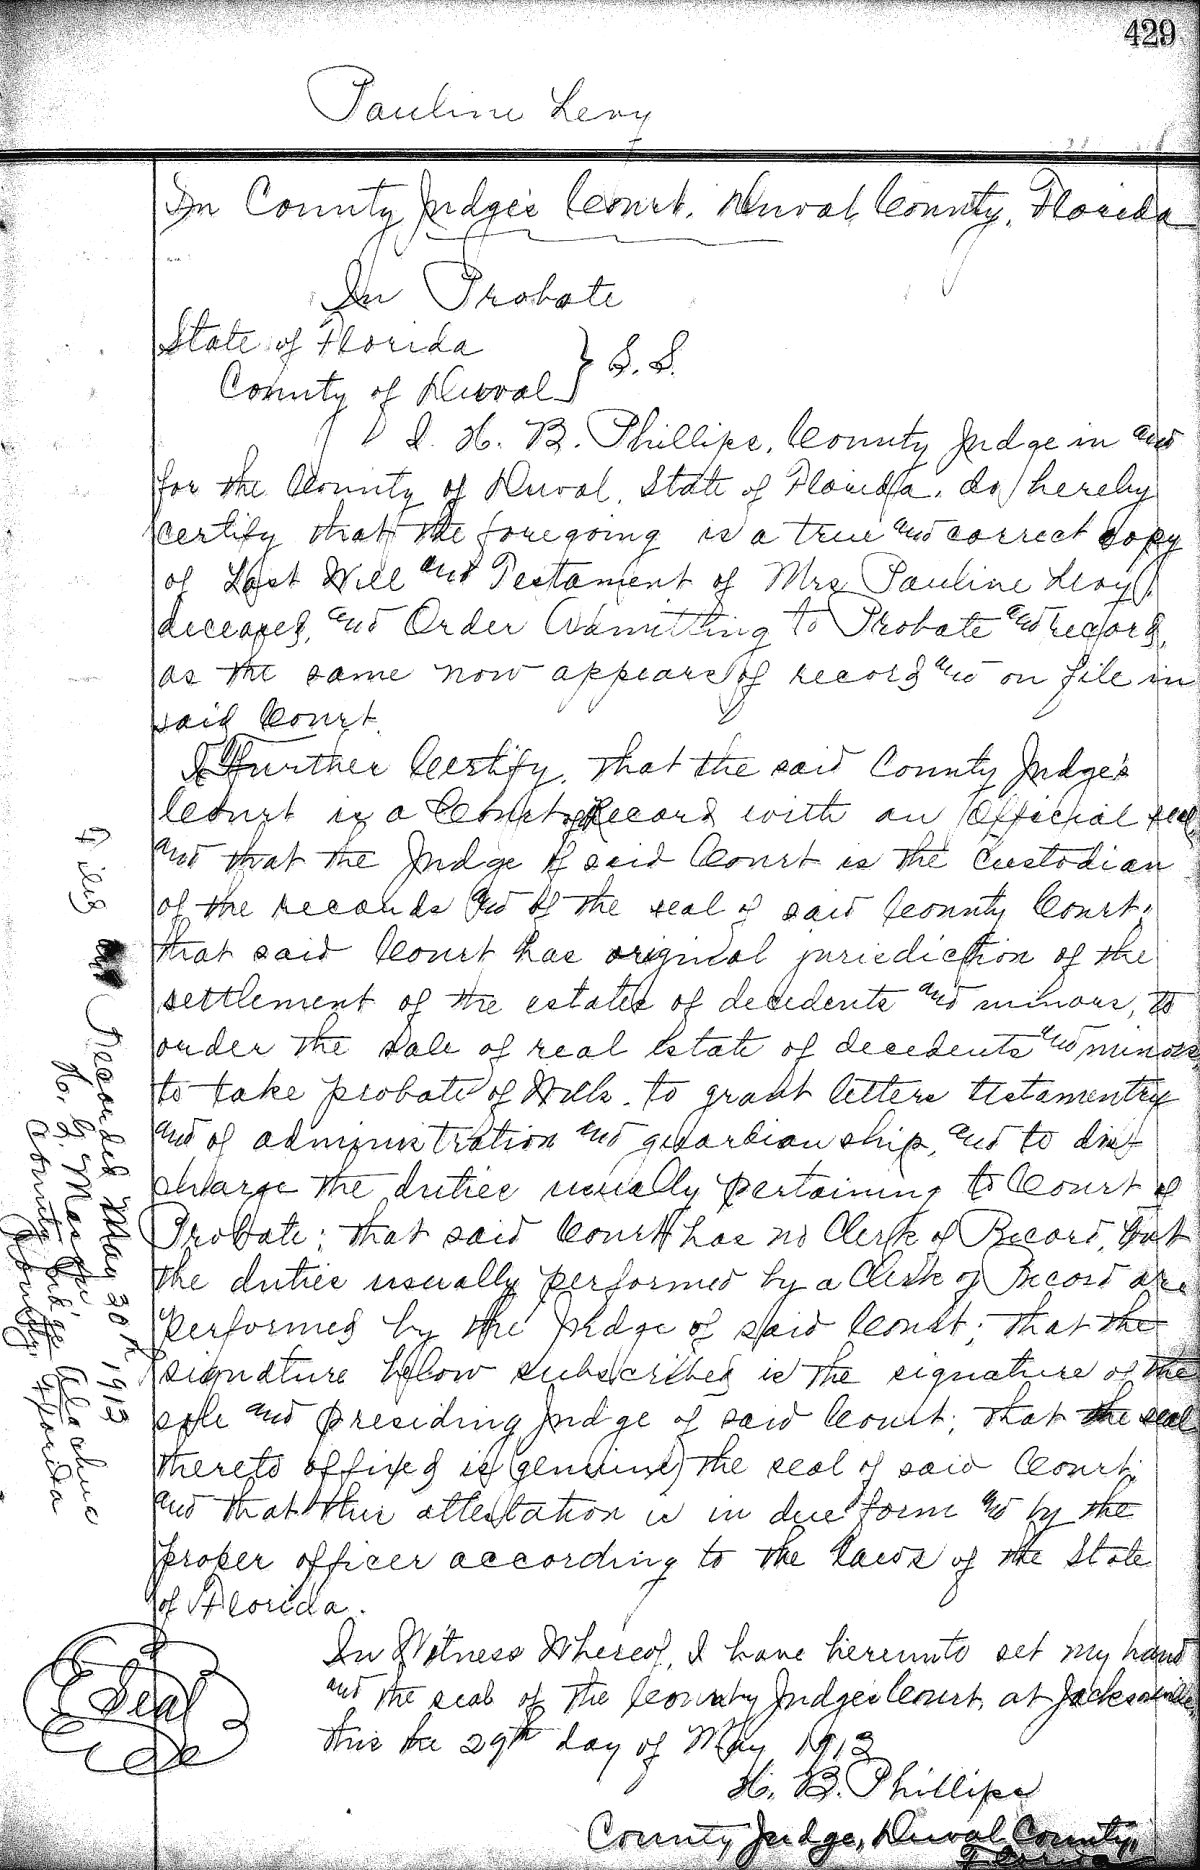 429
Pauline Levy
In County Judge's Court, Duval County, Florida
In Probate
State of Florida } S.S.
County of Duval }
I. H. B. Phillips, County Judge in and
for the County of Duval, State of Florida, do hereby
certify that the foregoing is a true and correct copy
of Last Will and Testament of Mrs Pauline Levy,
deceased, and Order Admitting to Probate and record,
as the same now appears of record and on file in
said Court.
I Further Certify, that the said County Judge's
Court is a Court of Record with an Official seal
and that the Judge of said Court is the custodian
of the records and of the seal of said County Court;
that said Court has original jurisdiction of the
settlement of the estates of decedents and minors, to
order the sale of real estate of decedents and minors,
to take probate of Wills, to grant letters testamentry
and of administration and guardianship, and to dis-
charge the duties usually pertaining to Court of
Probate; that said Court has no Clerk of Record, but
the duties usually performed by a Clerk of Record are
performed by the Judge of said Court; that the
signature below subscribed is the signature of the
sole and presiding Judge of said Court; that the seal
thereto affixed is (genuine) the seal of said Court;
and that this attestation is in due form and by the
proper officer according to the laws of the State
of Florida.
In Witness Whereof, I have hereunto set my hand
and the seal of the County Judge's Court, at Jacksonville,
this the 29th day of May, 1913
H. B. Phillips
County Judge, Duval County,
Florida
Seal
Filed and Recorded May 30th 1913
H. G. Mason
County Judge Alachua
County, Florida